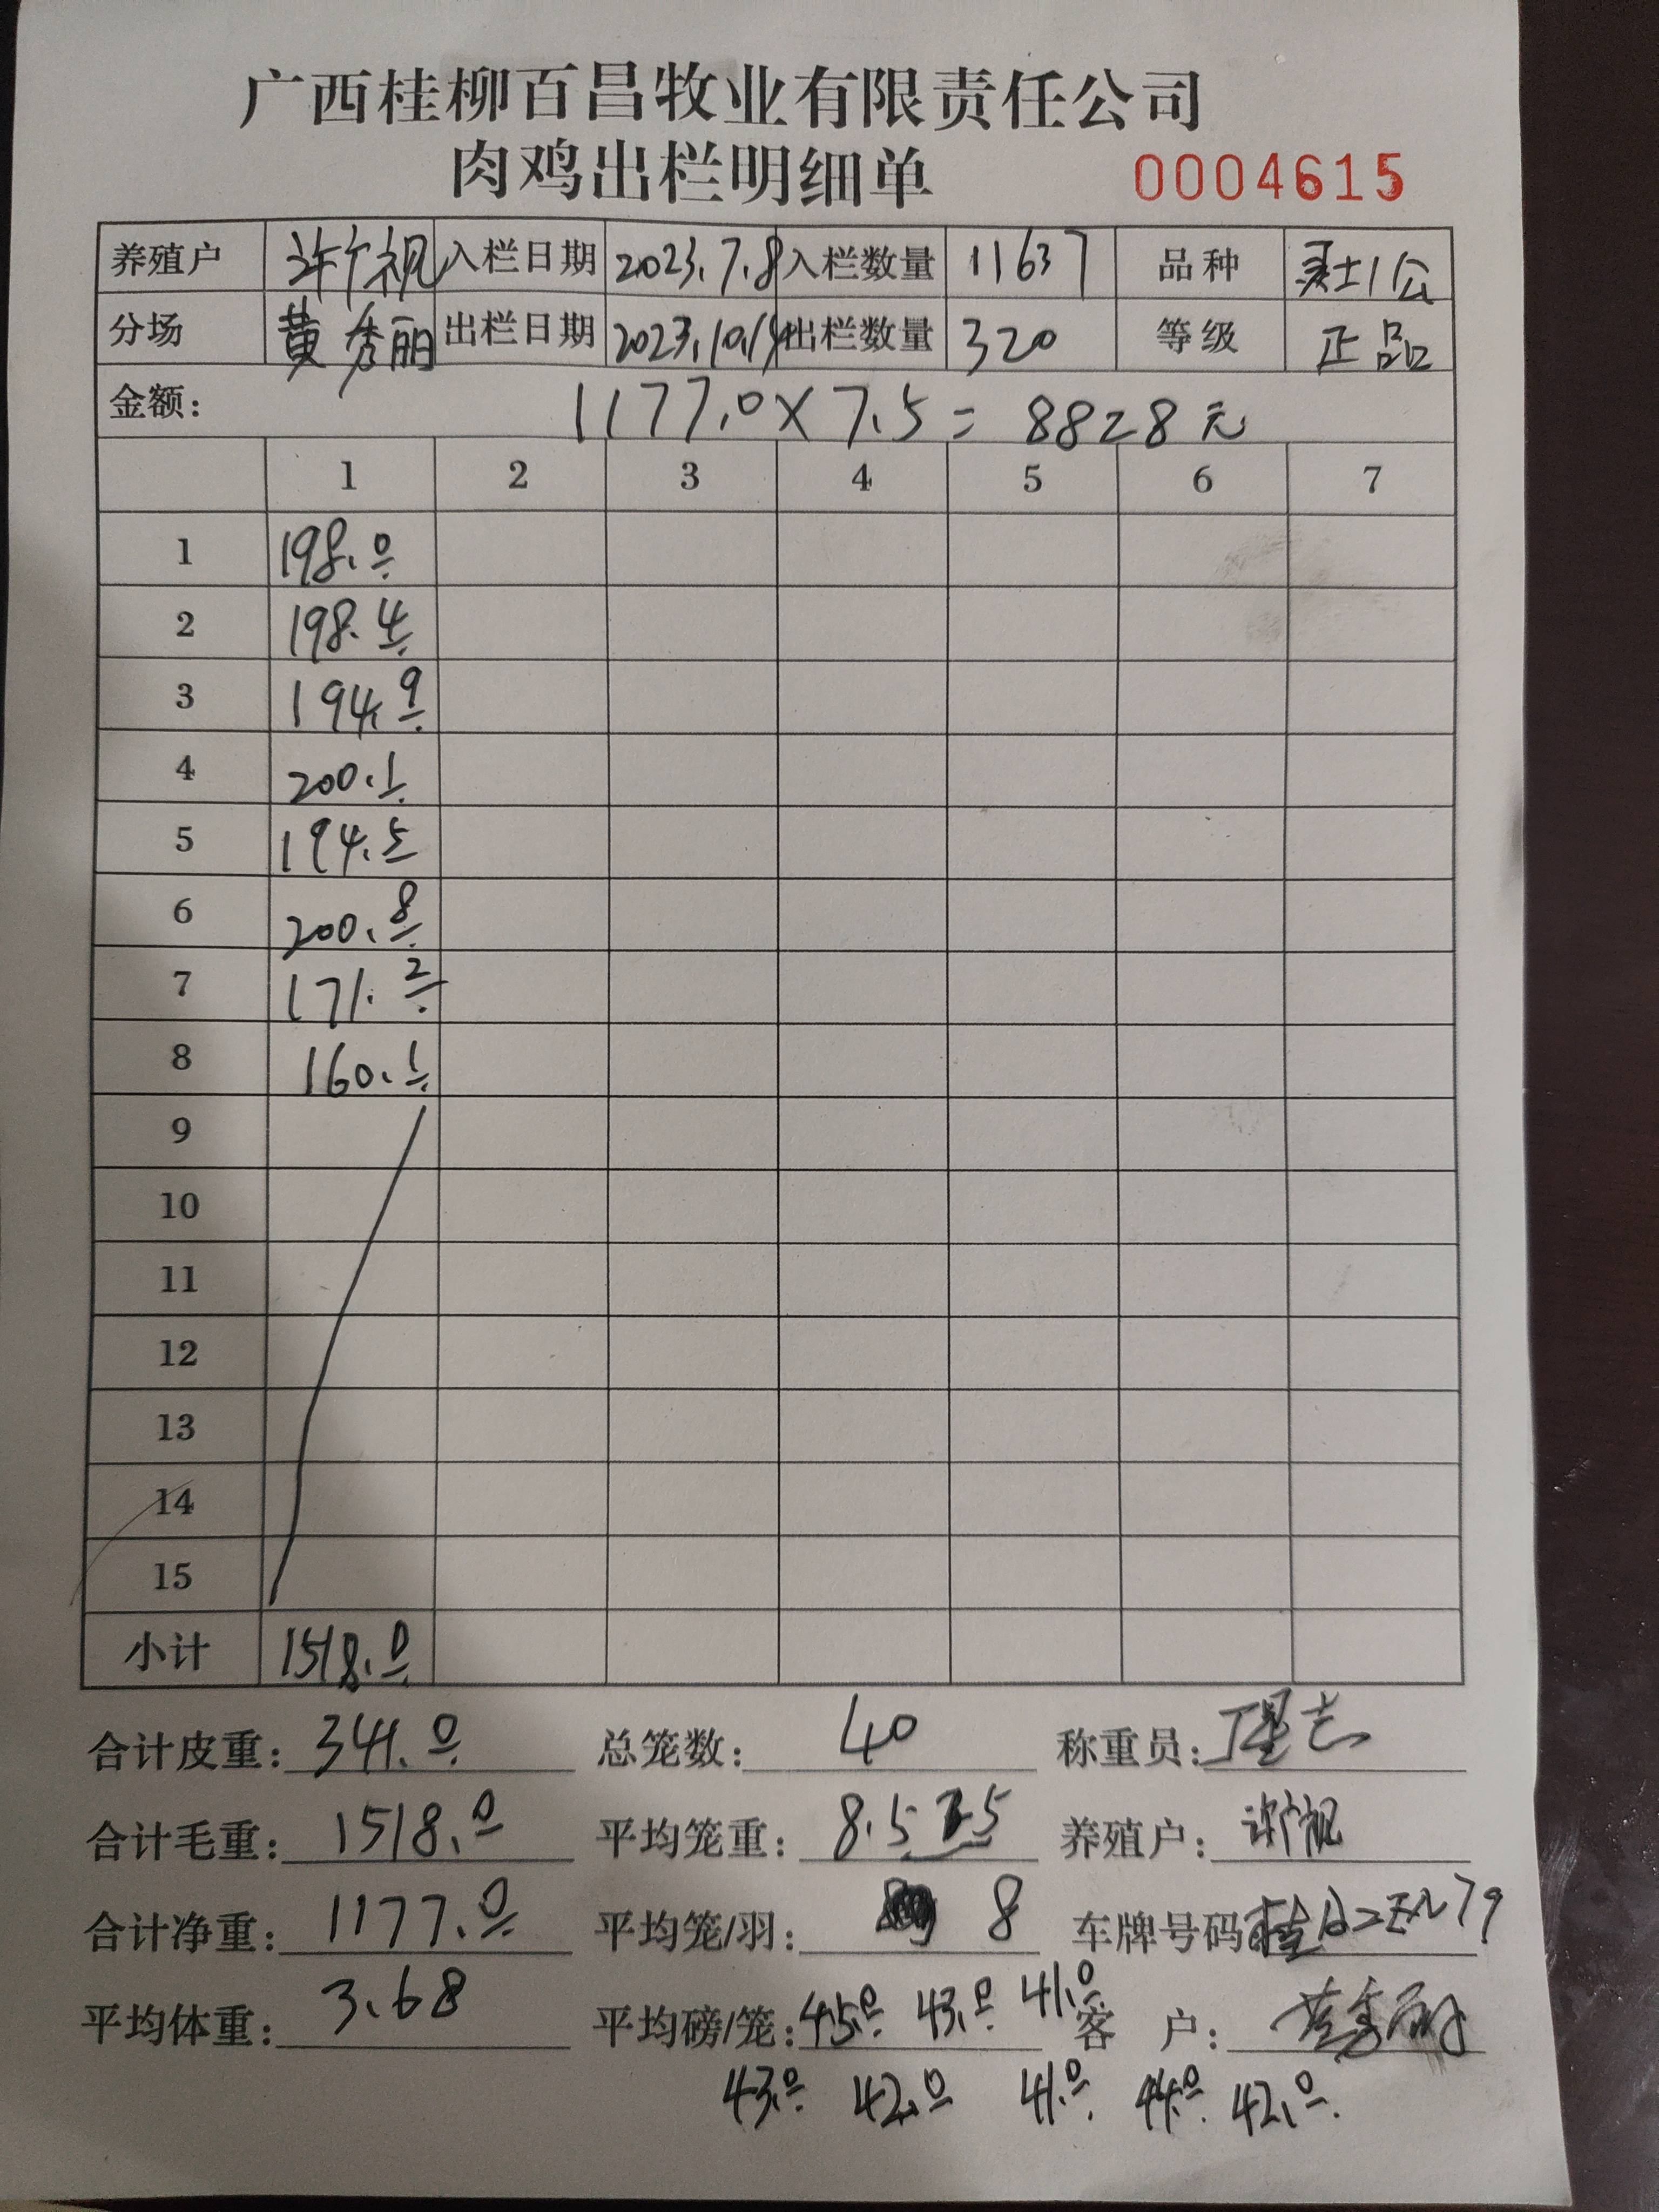 广西桂柳百昌牧业有限责任公司
肉鸡出栏明细单 0004615
养殖户 许广视 入栏日期 2023.7.8 入栏数量 11637 品种 公
分场 黄秀丽 出栏日期 2023.10.19 出栏数量 320 等级 正品
金额: 1177.0×7.5=8828元
1 2 3 4 5 6 7
1 198.0
2 198.4
3 194.9
4 200.1
5 194.5
6 200.8
7 171.2
8 160.1
9
10
11
12
13
14
15
小计 1518.0
合计皮重: 341.0 总笼数: 40 称重员:
合计毛重: 1518.0 平均笼重: 8.525 养殖户: 许广视
合计净重: 1177.0 平均笼/羽: 8 车牌号码
平均体重: 3.68 平均磅/笼: 45.0 43.0 41.0 客户: 黄秀丽
43.0 42.0 41.0 44.0 42.0